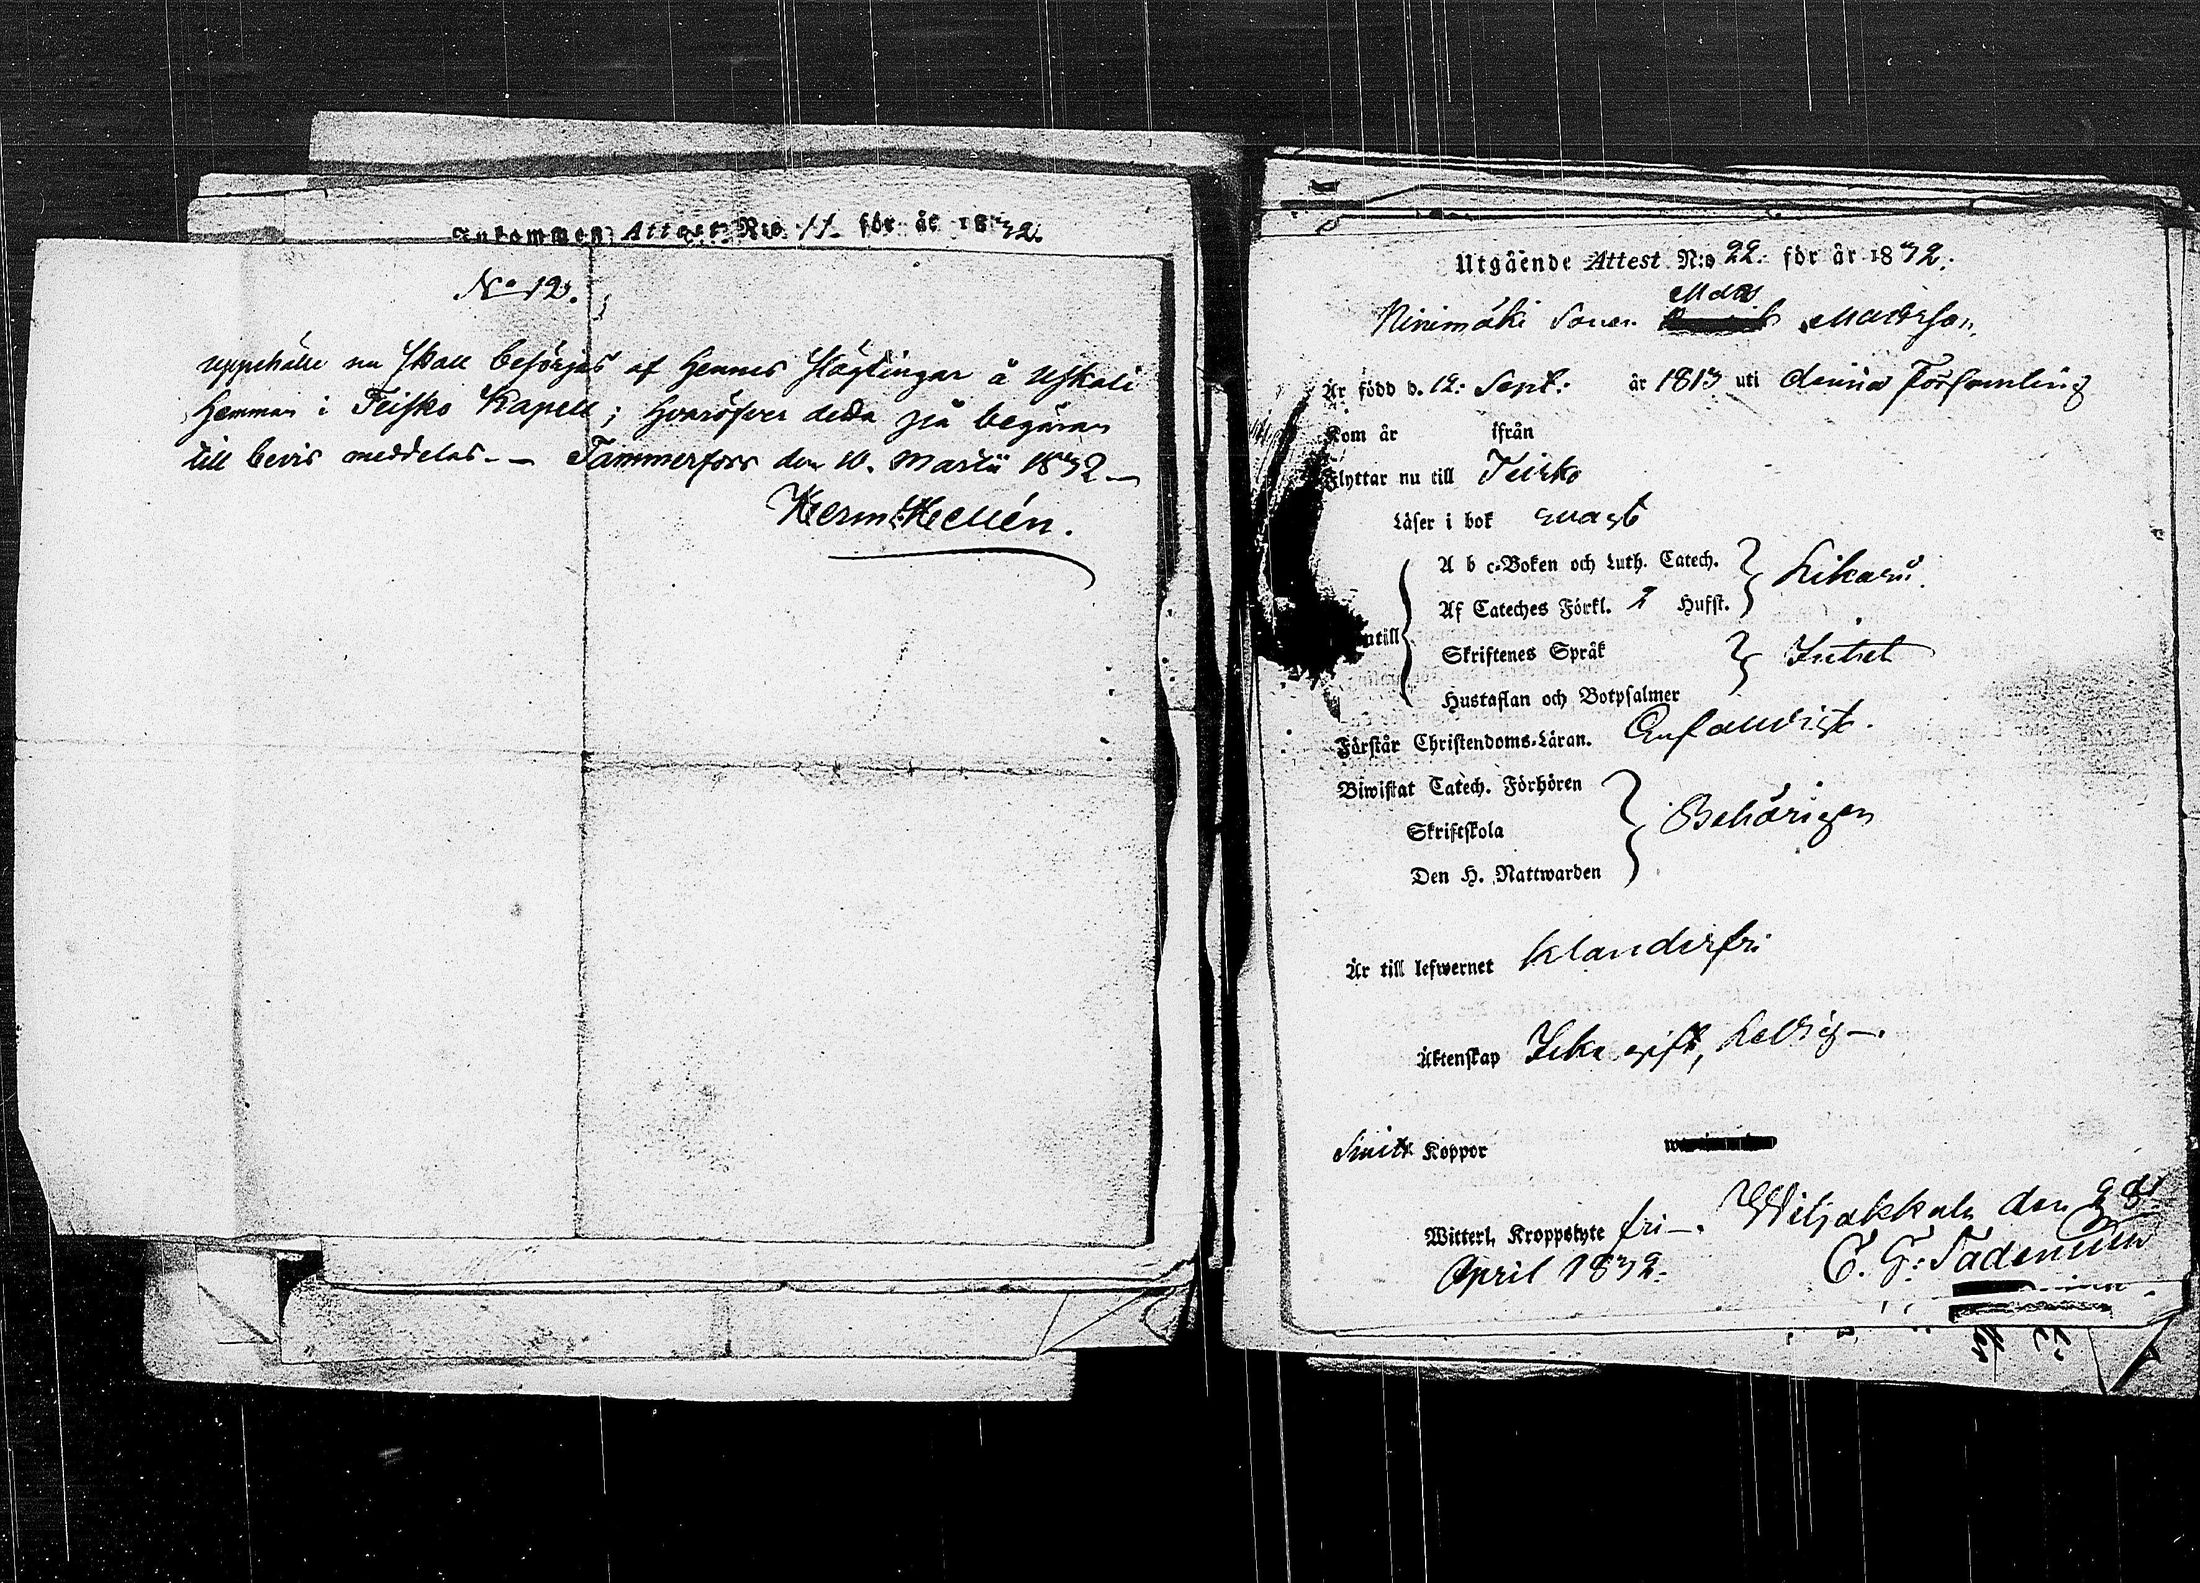 Ankommen Attest N:o 11. för år 1832.
No 12.
uppehälle nu skall besörjas af hennes slägtingar å Uskali
Hemman i Teisko Kapell; hvaröfver detta på begäran
till bevis meddelas. — Tammerfors den 10. Martii 1832 —
Herm: Hellén.
Utgående Attest N:o 22. för år 1832.
Mats
Ninimäki Sonen Mattsson
Är född d. 12: Sept: år 1813 uti denna Församling
Kom år ifrån
Flyttar nu till Teisko
Läser i bok svagt
A b c-Boken och Luth. Catech.
Af Cateches Förkl. 2 Hufst. Likaså
Skriftenes Språk Intet
Hustaflan och Botpsalmer
Förstår Christendoms-Läran. Enfaldigt.
Biwistat Catech. Förhören
Skriftskola Behörigen
Den H. Nattwarden
Är till lefwernet klanderfri
Äktenskap Icke gift, ledig —.
Smitt Koppor
Witterl. Kroppslyte fri —. Wiljakkala den 9de
April 1832. C. G: